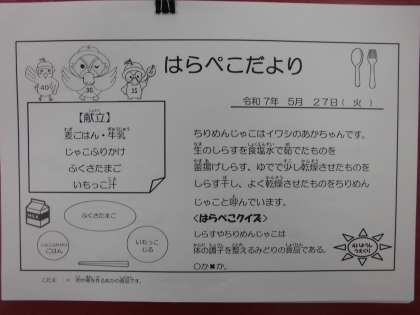 はらぺこだより
令和 7年 5月 27日(火)
【献立】
麦ごはん・牛乳
じゃこふりかけ
ふくさたまご
いもっこ汁
ちりめんじゃこはイワシのあかちゃんです。
生のしらすを食塩水で茹でたものを
釜揚げしらす、ゆでて少し乾燥させたものを
しらす干し、よく乾燥させたものをちりめん
じゃこと呼んでいます。
<はらぺこクイズ>
しらすやちりめんじゃこは
体の調子を整えるみどりの食品である。
〇か✖か。
ふくさたまご
ごはん
いもっこ
じる